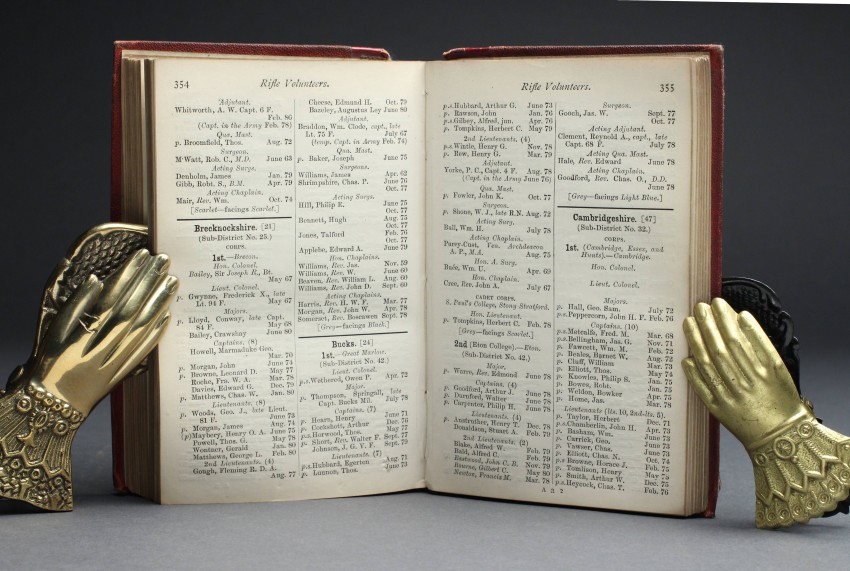 354
Rifle Volunteers.
Adjutant.
Whitworth, A. W. Capt. 6 F.
Feb. 86
(Capt. in the Army Feb. 78)
Qua. Mast.
p. Broomfield, Thos. Aug. 72
Surgeon.
M'Watt, Rob. C., M.D. June 63
Acting Surgs.
Denholm, James Jan. 79
Gibb, Robt. S., B.M. Apr. 79
Acting Chaplain.
Mair, Rev. Wm. Oct. 74
[Scarlet—facings Scarlet.]
Brecknockshire. [21]
(Sub-District No. 25.)
CORPS.
1st.—Brecon.
Hon. Colonel.
Bailey, Sir Joseph R., Bt.
May 67
Lieut. Colonel.
p. Gwynne, Frederick X., late
Lt. 94 F. May 67
Majors.
p. Lloyd, Conway, late Capt.
84 F. May 68
Bailey, Crawshay June 80
Captains. (8)
Howell, Marmaduke Geo.
Mar. 70
p. Morgan, John June 74
p. Browne, Leonard D. May 77
Rocke, Fra. W. A. Mar. 78
Davies, Edward G. Dec. 79
p. Matthews, Chas. W. Jan. 80
Lieutenants. (8)
p. Woods, Geo. J., late Lieut.
81 F. June 73
p. Morgan, James Aug. 74
(p) Maybery, Henry O. A. June 75
Powell, Thos. G. May 78
Wontner, Gerald Jan. 80
Matthews, George L. Feb. 80
2nd Lieutenants. (4)
Gough, Fleming R. D. A.
Aug. 77
Cheese, Edmund H. Oct. 79
Bazeley, Augustus Ley June 80
Adjutant.
Braddon, Wm. Clode, capt., late
Lt. 75 F. July 67
(temp. Capt. in Army Feb. 74)
Qua. Mast.
p. Baker, Joseph June 75
Surgeons.
Williams, James Apr. 62
Shrimpshire, Chas. P. June 76
Oct. 77
Acting Surgs.
Hill, Philip E. June 75
Oct. 77
Bennett, Hugh Aug. 75
Oct. 77
Jones, Talford Feb. 76
Oct. 77
Applebe, Edward A. June 79
Hon. Chaplains.
Williams, Rev. Jas. Nov. 59
Williams, Rev. W. June 60
Beavan, Rev. William L. Aug. 60
Williams, Rev. John D. Sept. 60
Acting Chaplains.
Harris, Rev. H. W. F. Mar. 77
Morgan, Rev. John W. Apr. 78
Somerset, Rev. Boscawen Sept. 78
[Grey—facings Black.]
Bucks. [24]
1st.—Great Marlow.
(Sub-District No. 42.)
Lieut. Colonel.
p.s. Wethered, Owen P. Apr. 72
Major.
p. Thompson, Springall, late
Capt. Bucks Mil. July 78
Captains. (7)
p. Hearn, Henry June 71
p. Cockshott, Arthur Dec. 76
p.s. Horwood, Thos. May 77
p. Short, Rev. Walter F. Sept. 77
Johnson, J. G. V. F. Sept. 79
Lieutenants. (7)
p.s. Hubbard, Egerton Aug. 71
p. Lunnon, Thos. June 73
Rifle Volunteers.
355
p.s. Hubbard, Arthur G. June 73
p. Rawson, John Jan. 76
p.s. Gilbey, Alfred, jun. Apr. 76
p. Tompkins, Herbert C. May 79
2nd Lieutenants. (4)
p.s. Wintle, Henry G. Nov. 78
p. Row, Henry G. Mar. 79
Adjutant.
Yorke, P. C., Capt. 4 F. Aug. 78
(Capt. in the Army June 76)
Qua. Mast.
p. Fowler, John K. Oct. 77
Surgeon.
p. Shone, W. J., late R.N. Aug. 72
Acting Surg.
Ball, Wm. H. July 78
Acting Chaplain.
Purey-Cust, Ven. Archdeacon
A. P., M.A. Aug. 75
Hon. A. Surg.
Bude, Wm. U. Apr. 60
Hon. Chaplain.
Cree, Rev. John A. July 67
CADET CORPS.
S. Paul's College, Stony Stratford.
Hon. Lieutenant.
p. Tompkins, Herbert C. Feb. 78
[Grey—facings Scarlet.]
2nd (Eton College).—Eton.
(Sub-District No. 42.)
Major.
p. Warre, Rev. Edmond June 78
Captains. (4)
p. Goodford, Arthur J. June 78
p. Durnford, Walter June 78
p. Carpenter, Philip H. June 78
Lieutenants. (4)
p. Anstruther, Henry T. Dec. 78
Donaldson, Stuart A. Feb. 79
2nd Lieutenants. (2)
Blake, Alfred W. Feb. 79
Bald, Alfred C. Feb. 79
Eastwood, John C. B. Nov. 79
Ravens, Gilbert C. May 80
Newton, Francis M. Mar. 78
A B 2
Surgeon.
Gooch, Jas. W. Sept. 77
Oct. 77
Acting Adjutant.
Clement, Reynold A., capt., late
Capt. 68 F. July 78
Acting Qua. Mast.
Hale, Rev. Edward June 78
Acting Chaplain.
Goodford, Rev. Chas. O., D.D.
June 78
[Grey—facings Light Blue.]
Cambridgeshire. [47]
(Sub-District No. 32.)
CORPS.
1st. (Cambridge, Essex, and
Hunts).—Cambridge.
Hon. Colonel.
Lieut. Colonel.
Majors.
p. Hall, Geo. Sam. July 72
p.s. Peppercorn, John H. F. Feb. 76
Captains. (10)
p.s. Metcalfe, Fred. M. Mar. 68
p.s. Bellingham, Jas. G. Nov. 71
p. Fawcett, Wm. M. Feb. 72
p. Beales, Barnet W. Aug. 72
p. Cluff, William Mar. 73
p. Elliott, Thos. May 74
p. Knowles, Philip S. Jan. 75
p. Bowes, Robt. Jan. 75
p. Weldon, Bowker Apr. 75
p. Horne, Jas. Mar. 78
Lieutenants (Lts. 10, 2nd-lts. 5).
p. Taylor, Herbert Dec. 71
p.s. Chamberlin, John H. Apr. 73
p. Basham, Wm. June 73
p. Carrick, Geo. June 73
p. Vawser, Chas. Jan. 73
p. Elliott, Chas. N. Oct. 74
p.s. Browne, Horace J. Feb. 75
p. Tomlison, Henry Mar. 75
p. Smith, Arthur W. Dec. 75
p.s. Heycock, Chas. T. Feb. 76